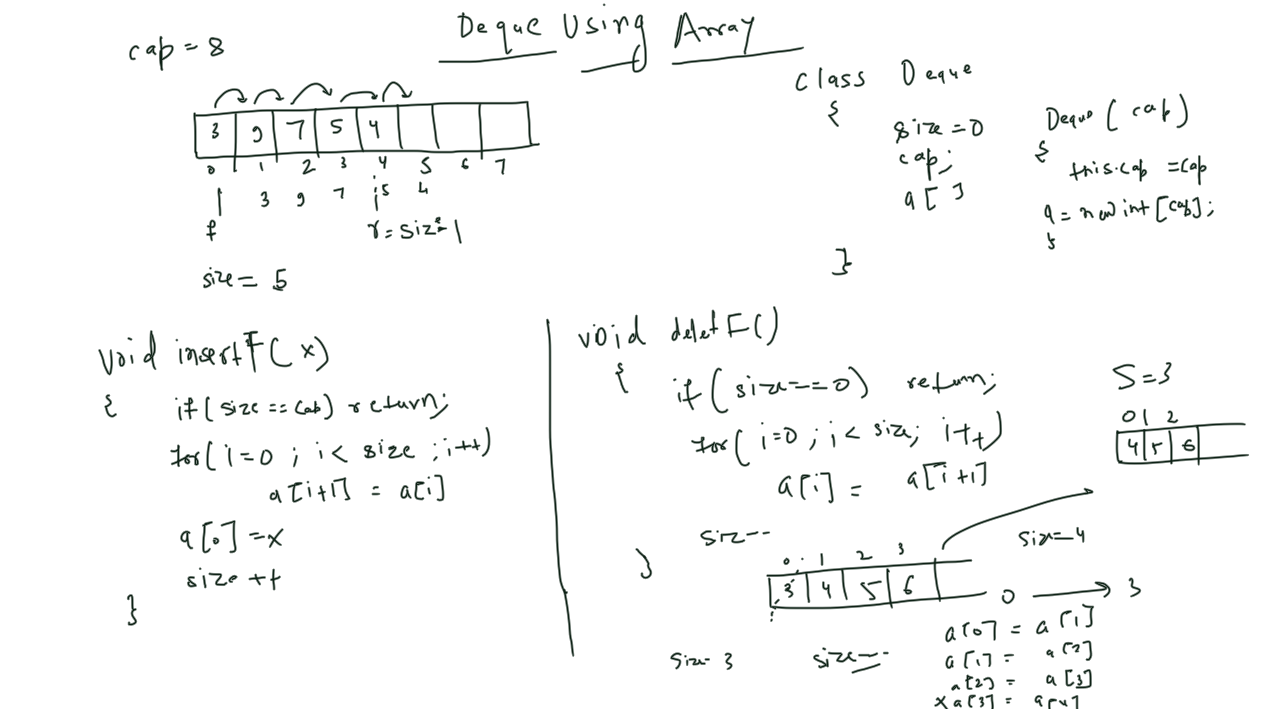 Deque Using Array
cap = 8
3 9 7 5 4
0 1 2 3 4 5 6 7
3 9 7 5 4
f r = size-1
size = 5
class Deque
{
size = 0
cap;
a[ ]
}
Deque ( cap )
{
this.cap = cap
a = new int [cap];
}
void insertF( x )
{
if ( size == cap ) return;
for ( i=0 ; i < size ; i++)
a [i+1] = a[i]
a [0] = x
size ++
}
void deletF()
{
if ( size == 0 ) return;
for ( i=0 ; i < size; i++)
a[i] = a[i+1]
size--
}
S=3
0 1 2
4 5 6
size=4
0 1 2 3
3 4 5 6
0 → 3
a[0] = a[1]
a[1] = a[2]
a[2] = a[3]
x a[3] = a[4]
size 3
size--